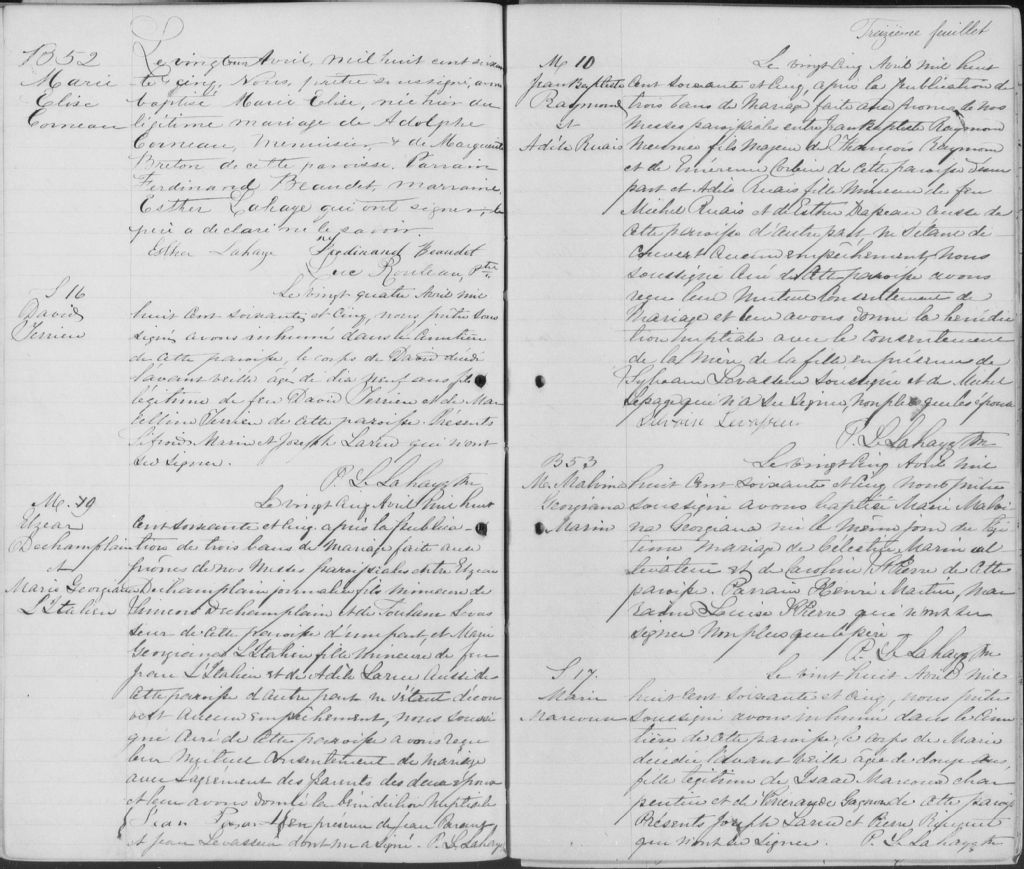 B 52
Marie
Elise
Corneau
Le vingt Avril, mil huit cent soixan
te cinq, Nous, prêtre soussigné, avons
baptisé Marie Elise, née hier du
légitime mariage de Adolphe
Corneau, Menuisier, & de Marguerite
Breton de cette paroisse. Parrain
Ferdinand Beaudet, marraine
Esther Lahaye qui ont signé, le
père a déclaré ne le savoir.
Esther Lahaye Ferdinand Beaudet
Luc Rouleau, Ptre
S 16
David
Terrien
Le vingt quatre Avril mil
huit Cent soixante et Cinq, nous prêtre sous
signé avons inhumé dans le Cimetière
de cette paroisse, le corps de David décédé
l'avant veille âgé de dix neuf ans fils
légitime de feu David Terrien et de Mar
Terrien de cette paroisse. Présents
Marin et Joseph Larue qui n'ont
su signer.
P. L. Lahaye Ptre
M. 19
Elzear
Dechamplain
et
Marie Georgiana
L'Italien
Le vingt Cinq Avril Mil huit
Cent soixante et Cinq, après la publica-
tion de trois bans de Mariage faite aux
prônes de nos Messes paroissiales entre Elzear
Dechamplain journalier fils mineur de
Dechamplain et de Levas
seur de cette paroisse d'une part, et Marie
Georgiana L'Italien fille mineure de feu
Jean L'Italien et de Adèle Larue Aussi de
cette paroisse d'autre part ne s'étant décou
vert Aucun Empêchement, nous soussi
gné Curé de Cette paroisse avons reçu
leur Mutuel Consentement de mariage
avec l'agrément des parents des deux époux
et leur avons donné la bénédiction Nuptiale
Jean en présence de Jean
et Jean Levasseur dont un a signé. P. L. Lahaye
Treizième feuillet
M 10
Jean Baptiste
Raymond
et
Adèle Ruais
Le vingt Cinq Avril mil huit
Cent soixante et Cinq, après la publication de
trois bans de Mariage faite aux prônes de nos
Messes paroissiales entre Jean Baptiste Raymon
fils Majeur de François Raymon
et de Emérence Corbin de Cette paroisse d'une
part et Adèle Ruais fille Mineure de feu
Michel Ruais et de Esther Drapeau Aussi de
cette paroisse d'autre part, ne s'étant dé
couvert Aucun empêchement, Nous
soussigné Curé de Cette paroisse avons
reçu leur Mutuel Consentement de
Mariage et leur avons donné la bénédic
tion Nuptiale avec le Consentement
de la Mère de la fille en présence de
Sylvain Levasseur soussigné et de Michel
Lepage qui n'a su signer, non plus que les époux
P. L. Lahaye Ptre
B 53
M. Malvina
Georgiana
Marin
Le vingt Cinq Avril Mil
huit Cent soixante et Cinq nous prêtre
soussigné avons baptisé Marie Malvi
na Georgiana née le même jour du légi
time mariage de Célestin Marin cul
tivateur et de Caroline St Pierre de Cette
paroisse. Parrain Henri Martin, Mar
raine Louise St Pierre qui n'ont su
signer Non plus que le père
P. L. Lahaye Ptre
S 17.
Marie
Marcoux
Le vint huit Avril mil
huit Cent soixante et Cinq, nous prêtre
soussigné avons inhumé dans le Cime
tière de Cette paroisse, le corps de Marie
décédée l'avant veille âgée de douze ans,
fille légitime de Isaac Marcoux char
pentier et de Gagnon de Cette paroisse
Présents Joseph Larue et Pierre
qui n'ont su signer. P. L. Lahaye Ptre